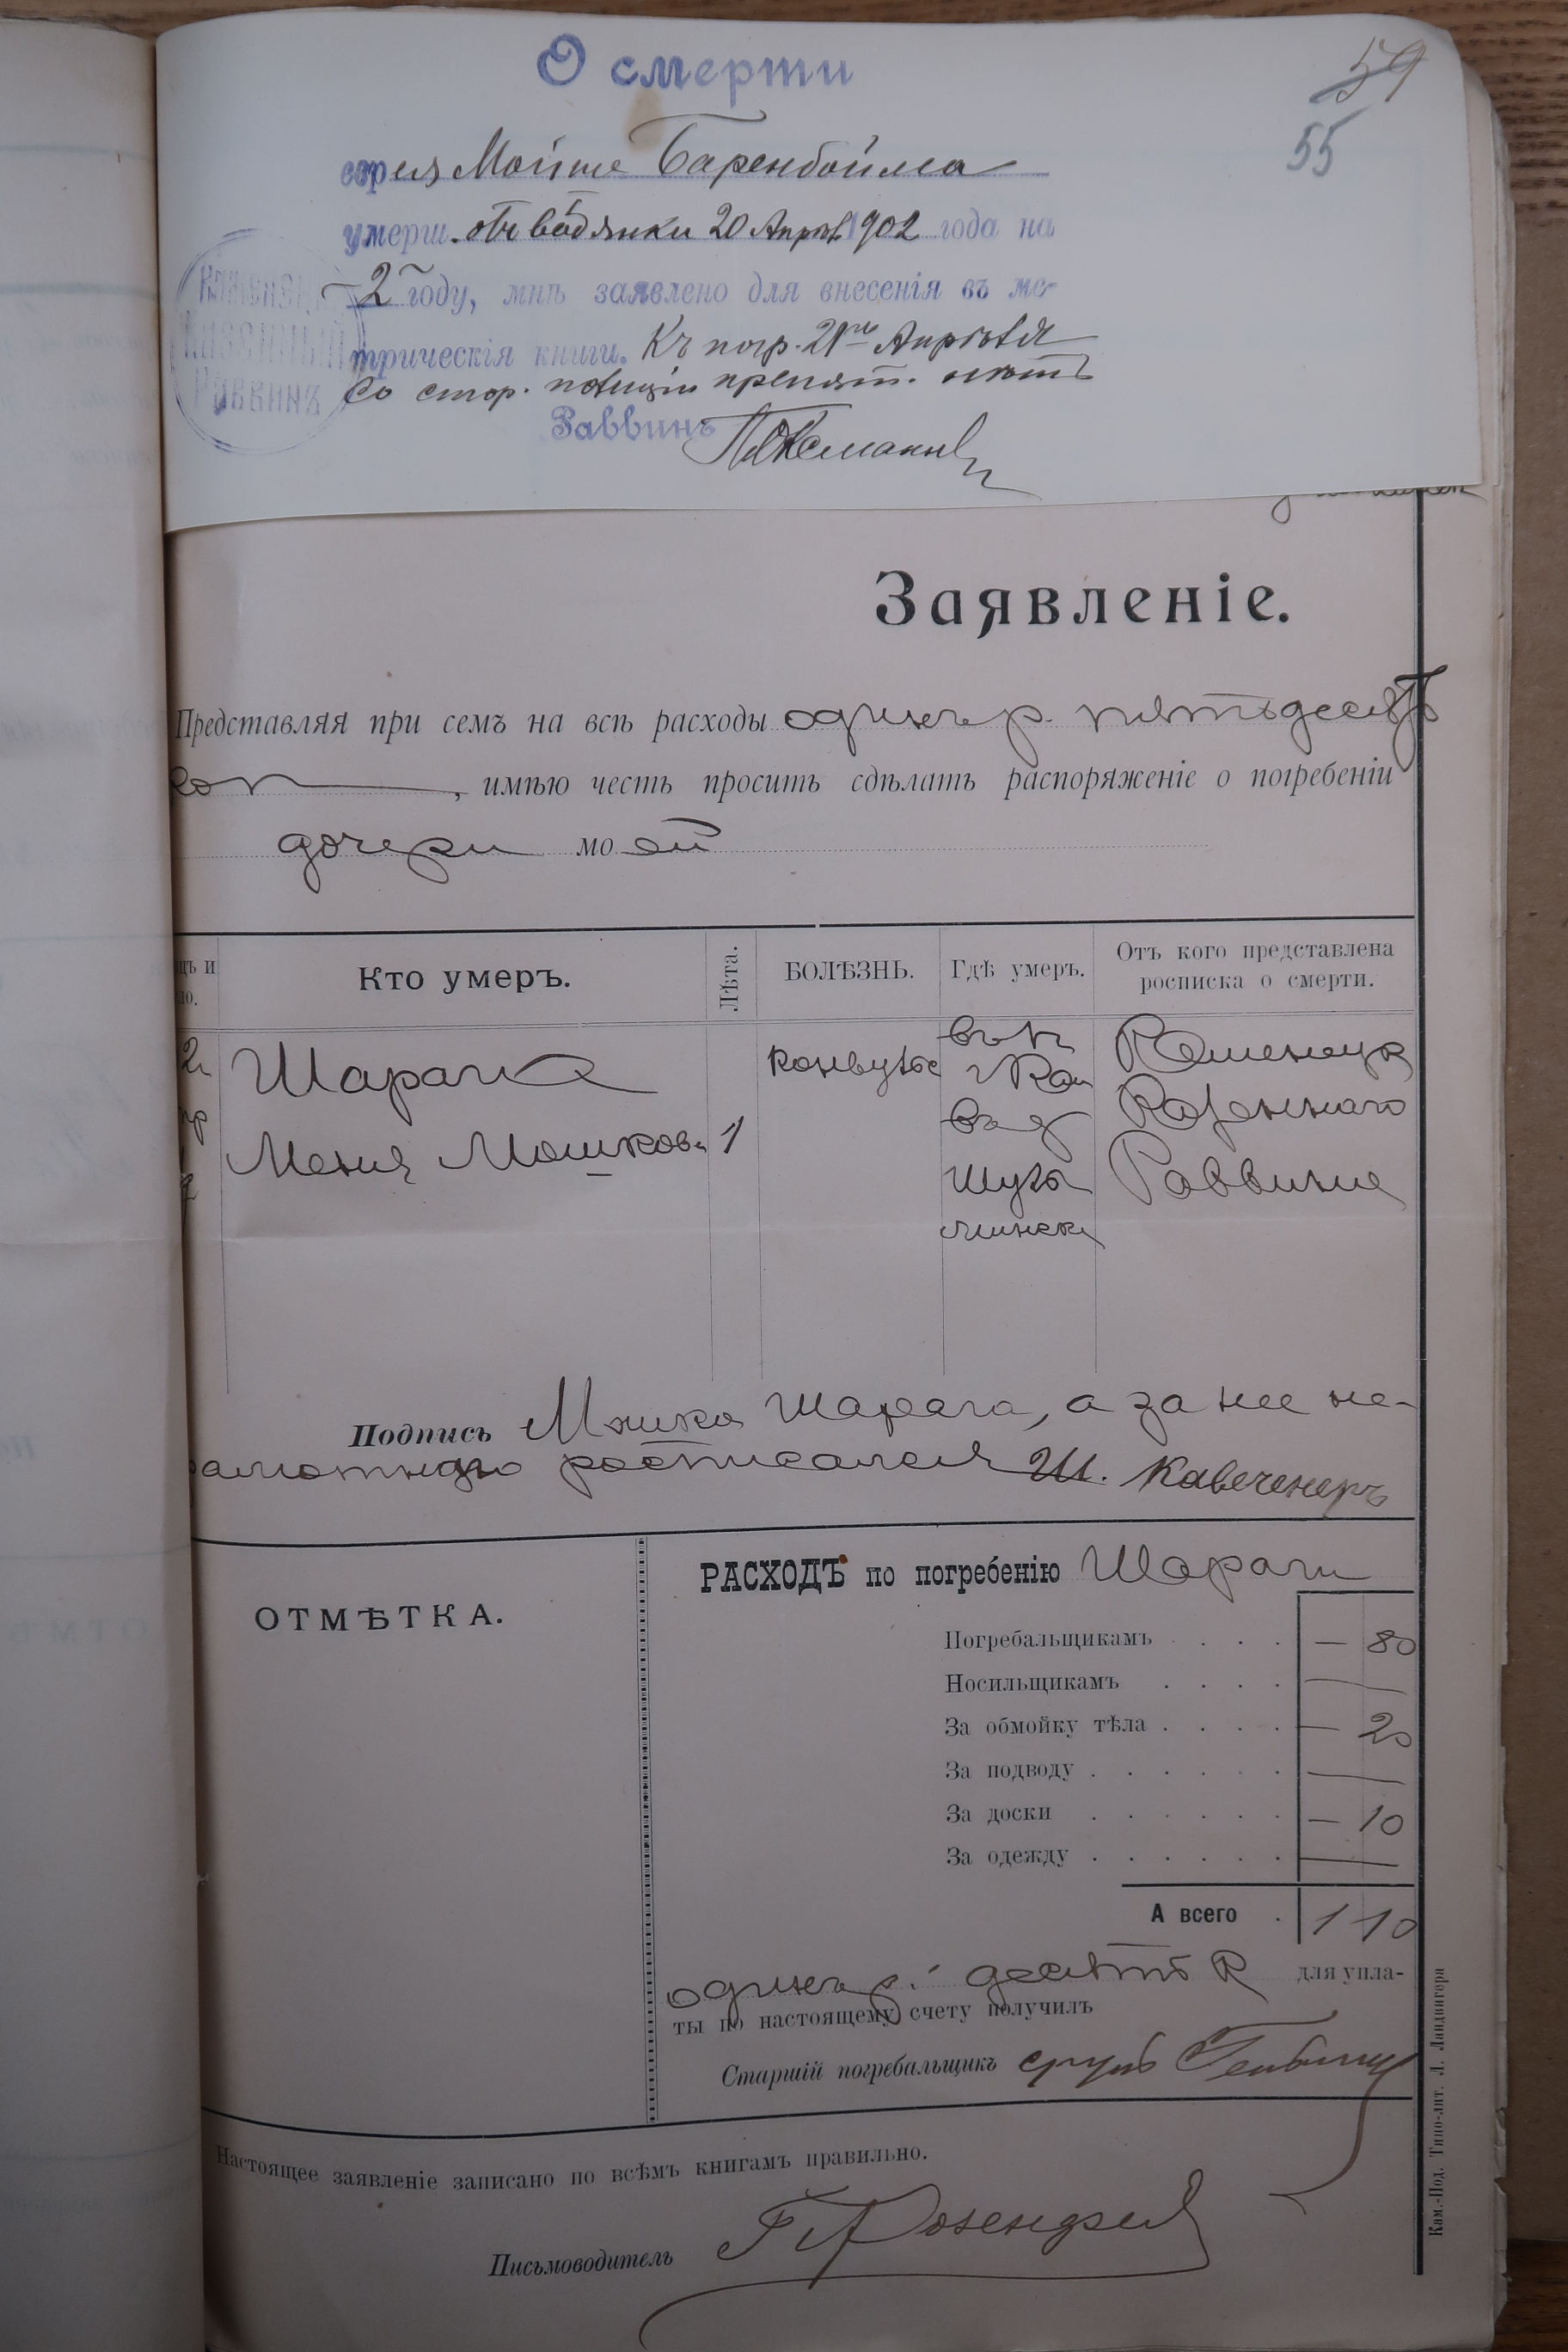 О смерти
59
55
еврея Мойше Баренбойма
умерш. отъ водянки 20 Апрѣл. 1902 года на
2 году, мнѣ заявлено для внесенія въ ме-
трическія книги. Къ погр. 21го Апрѣля
со стор. полиціи препят. нѣтъ
Каменец
Казенный
Раввинъ
Раввинъ
Заявленіе.
Представляя при семъ на всѣ расходы одинъ р. пятьдесятъ
коп, имѣю честь просить сдѣлать распоряженіе о погребеніи
дочери моей
цъ и
ло.
Кто умеръ.
Лѣта.
БОЛѢЗНЬ.
Гдѣ умеръ.
Отъ кого представлена
росписка о смерти.
Шарага
Меня Мошкова
1
въ
г Кам
въ д
Каменецк
Казеннаго
Раввина
Подпись Мошка Шарага, а за нее не-
рамотнаго росписался Ш. Кавеченеръ
ОТМѢТКА.
РАСХОДЪ по погребенію Шараги
Погребальщикамъ — 80
Носильщикамъ —
За обмойку тѣла — 20
За подводу —
За доски — 10
За одежду —
А всего 1 10
одинъ р. десять к для упла-
ты по настоящему счету получилъ
Старшій погребальщикъ
Настоящее заявленіе записано по всѣмъ книгамъ правильно.
Письмоводитель
Кам.-Под. Типо-лит. Л. Ландвигера